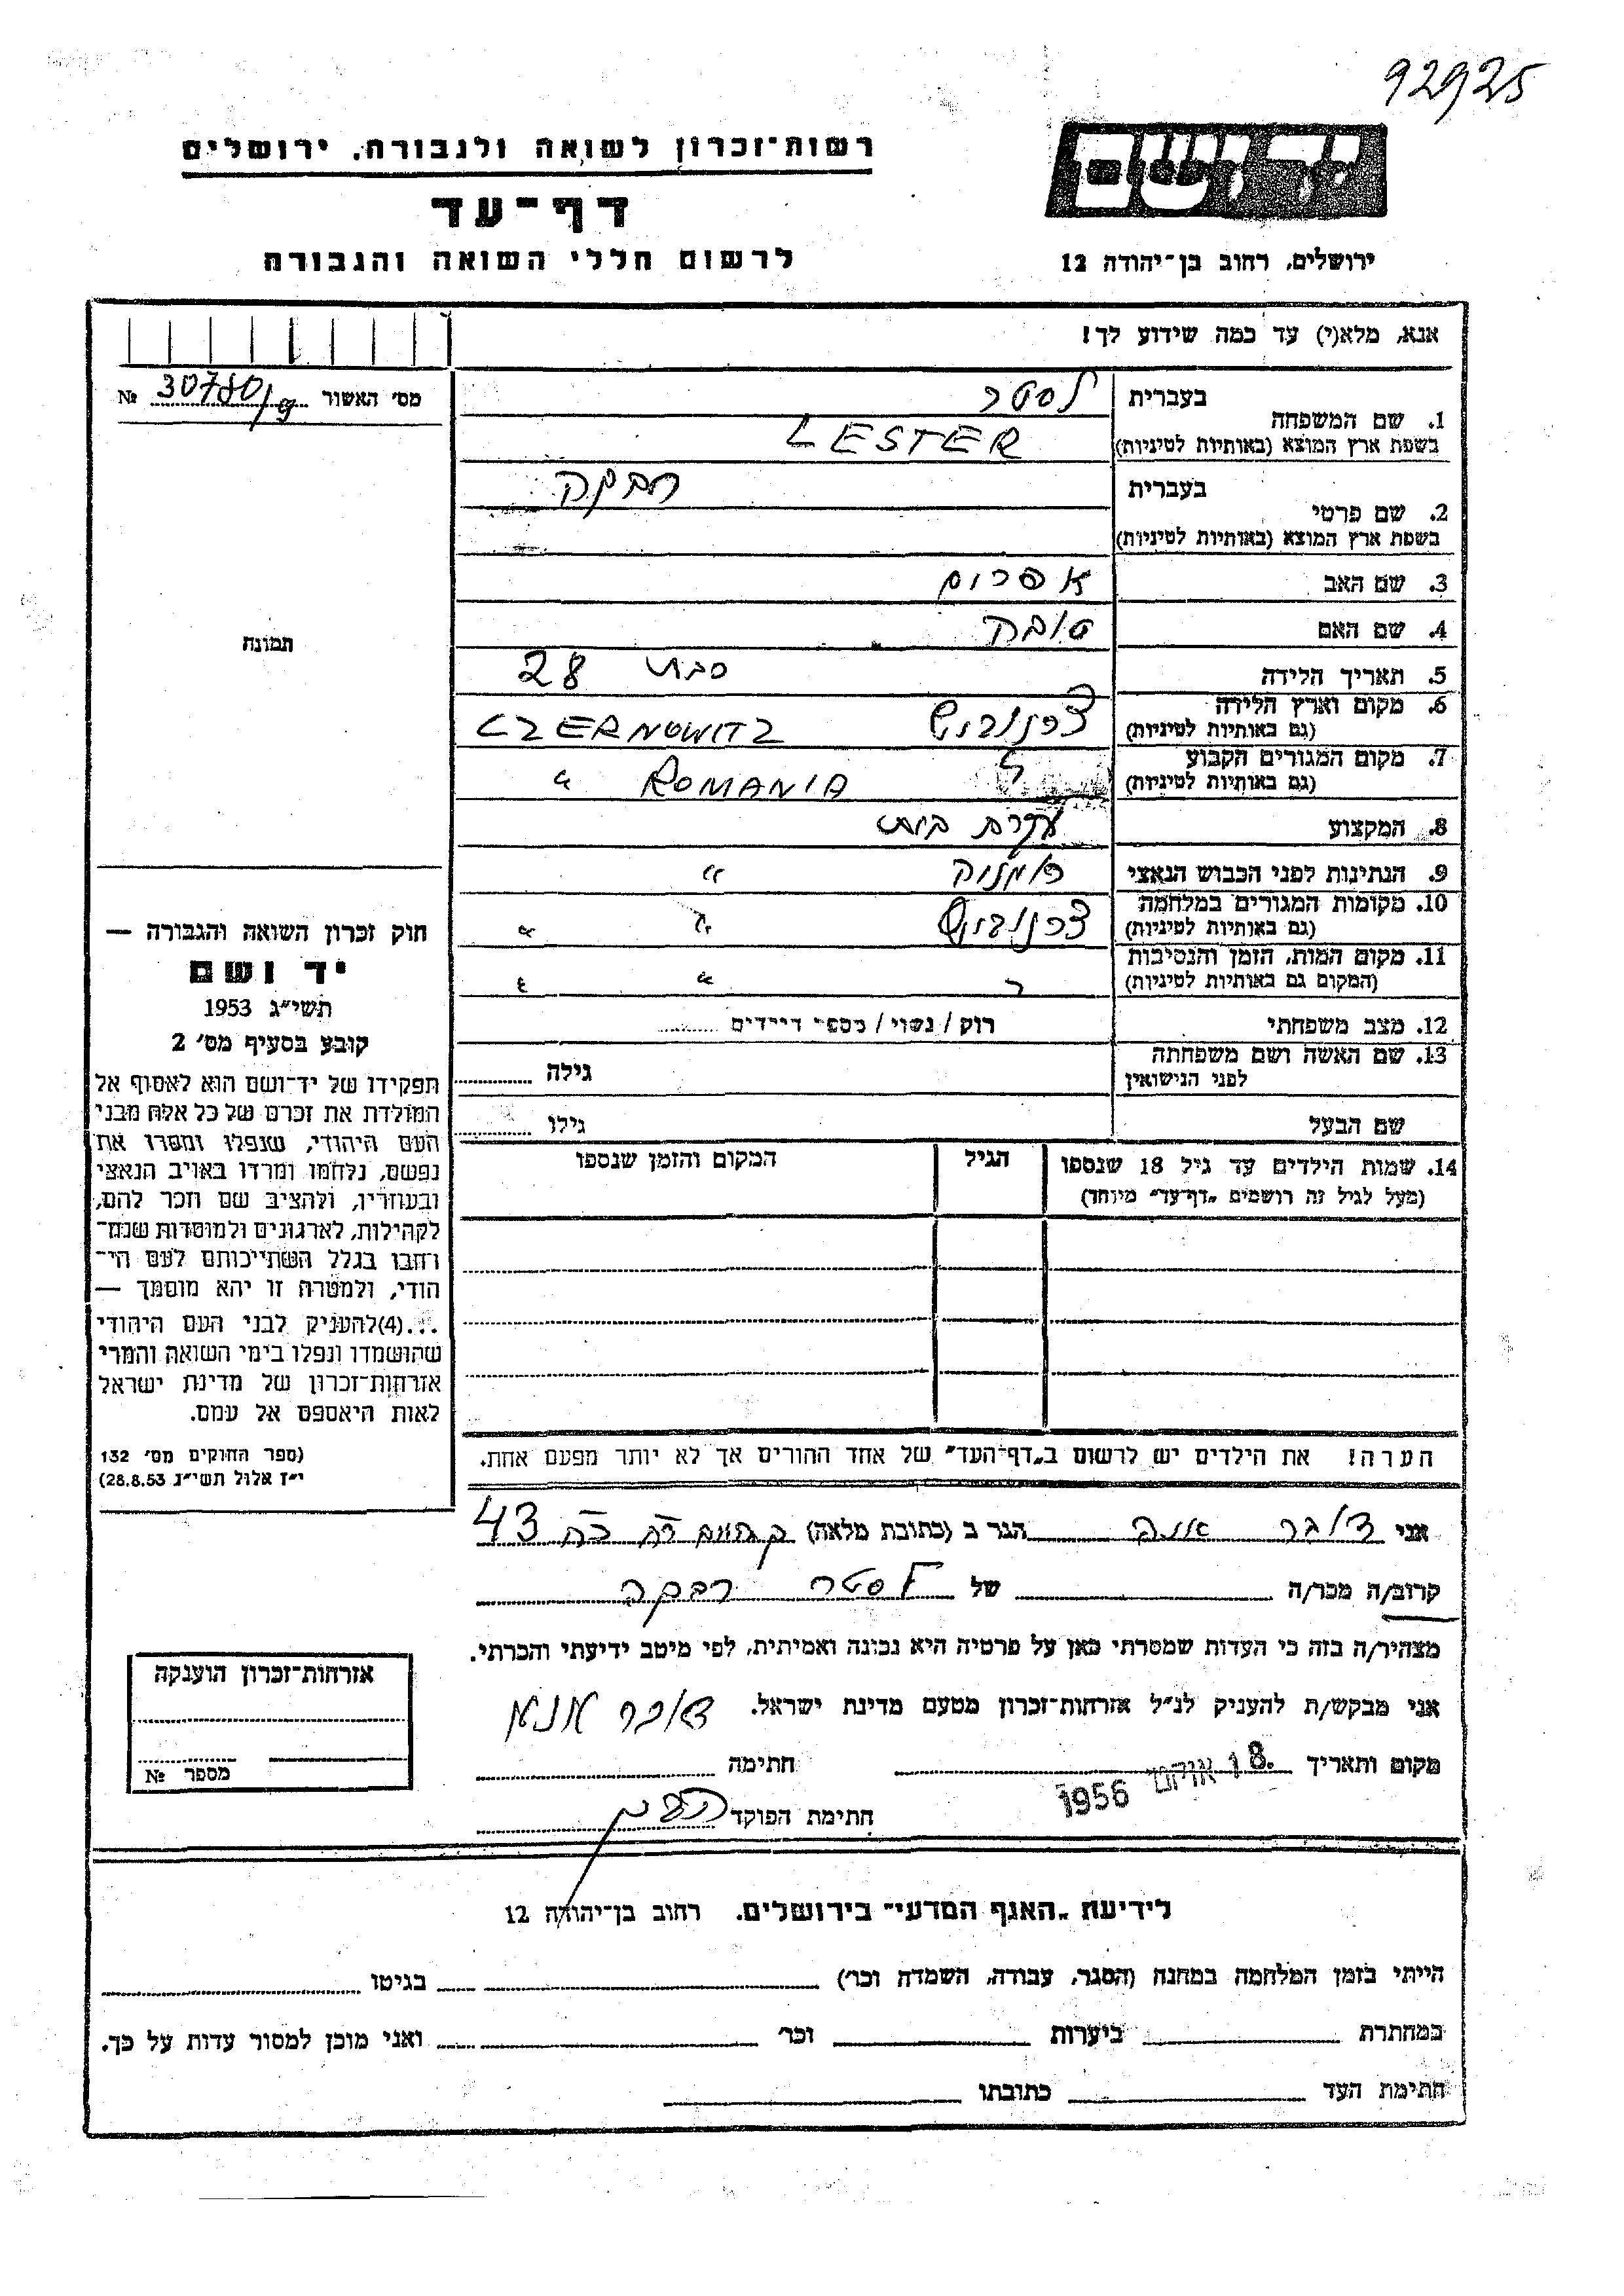 92925
יד ושם
רשות־זכרון לשואה ולגבורה, ירושלים
דף־עד
לרשום חללי השואה והגבורה
ירושלים, רחוב בן־יהודה 12
אנא, מלא(י) עד כמה שידוע לך!
מס׳ האשור 30780/ №
1. שם המשפחה
בעברית לסטר
בשפת ארץ המוצא (באותיות לטיניות) LESTER
2. שם פרטי
בעברית רבקה
בשפת ארץ המוצא (באותיות לטיניות)
3. שם האב אפרים
4. שם האם טובה
5. תאריך הלידה סבתי 28
6. מקום וארץ הלידה (גם באותיות לטיניות) צרנוביץ CZERNOWITZ
7. מקום המגורים הקבוע (גם באותיות לטיניות) ROMANIA "
8. המקצוע עקרת בית
9. הנתינות לפני הכבוש הנאצי רומניה "
10. מקומות המגורים במלחמה (גם באותיות לטיניות) צרנוביץ " "
11. מקום המות, הזמן והנסיבות (המקום גם באותיות לטיניות) " "
12. מצב משפחתי רוק / נשוי / מספר הילדים
13. שם האשה ושם משפחתה לפני הנישואין גילה
שם הבעל גילו
14. שמות הילדים עד גיל 18 שנספו הגיל המקום והזמן שנספו
(מעל לגיל זה רושמים „דף־עד״ מיוחד)
הערה! את הילדים יש לרשום ב„דף־העד״ של אחד ההורים אך לא יותר מפעם אחת.
תמונה
חוק זכרון השואה והגבורה —
יד ושם
תשי״ג 1953
קובע בסעיף מס׳ 2
תפקידו של יד־ושם הוא לאסוף אל
המולדת את זכרם של כל אלה מבני
העם היהודי, שנפלו ומסרו את
נפשם, נלחמו ומרדו באויב הנאצי
ובעוזריו, ולהציב שם וזכר להם,
לקהילות, לארגונים ולמוסדות שנח־
רבו בגלל השתייכותם לעם הי־
הודי, ולמטרה זו יהא מוסמך —
...(4) להעניק לבני העם היהודי
שהושמדו ונפלו בימי השואה והמרי
אזרחות־זכרון של מדינת ישראל
לאות היאספם אל עמם.
(ספר החוקים מס׳ 132
י״ז אלול תשי״ג 28.8.53)
אני אנה הגר ב (כתובת מלאה) 43
קרוב/ה מכר/ה של לסטר רבקה
מצהיר/ה בזה כי העדות שמסרתי כאן על פרטיה היא נכונה ואמיתית, לפי מיטב ידיעתי והכרתי.
אני מבקש/ת להעניק לנ״ל אזרחות־זכרון מטעם מדינת ישראל.
מקום ותאריך 18. אוקט 1956 חתימה
חתימת הפוקד
אזרחות־זכרון הוענקה
מספר №
לידיעת „האגף המדעי״ בירושלים, רחוב בן־יהודה 12
הייתי בזמן המלחמה במחנה (הסגר, עבודה, השמדה וכר׳) בגיטו
במחתרת ביערות וכר׳ ואני מוכן למסור עדות על כך.
חתימת העד כתובתו